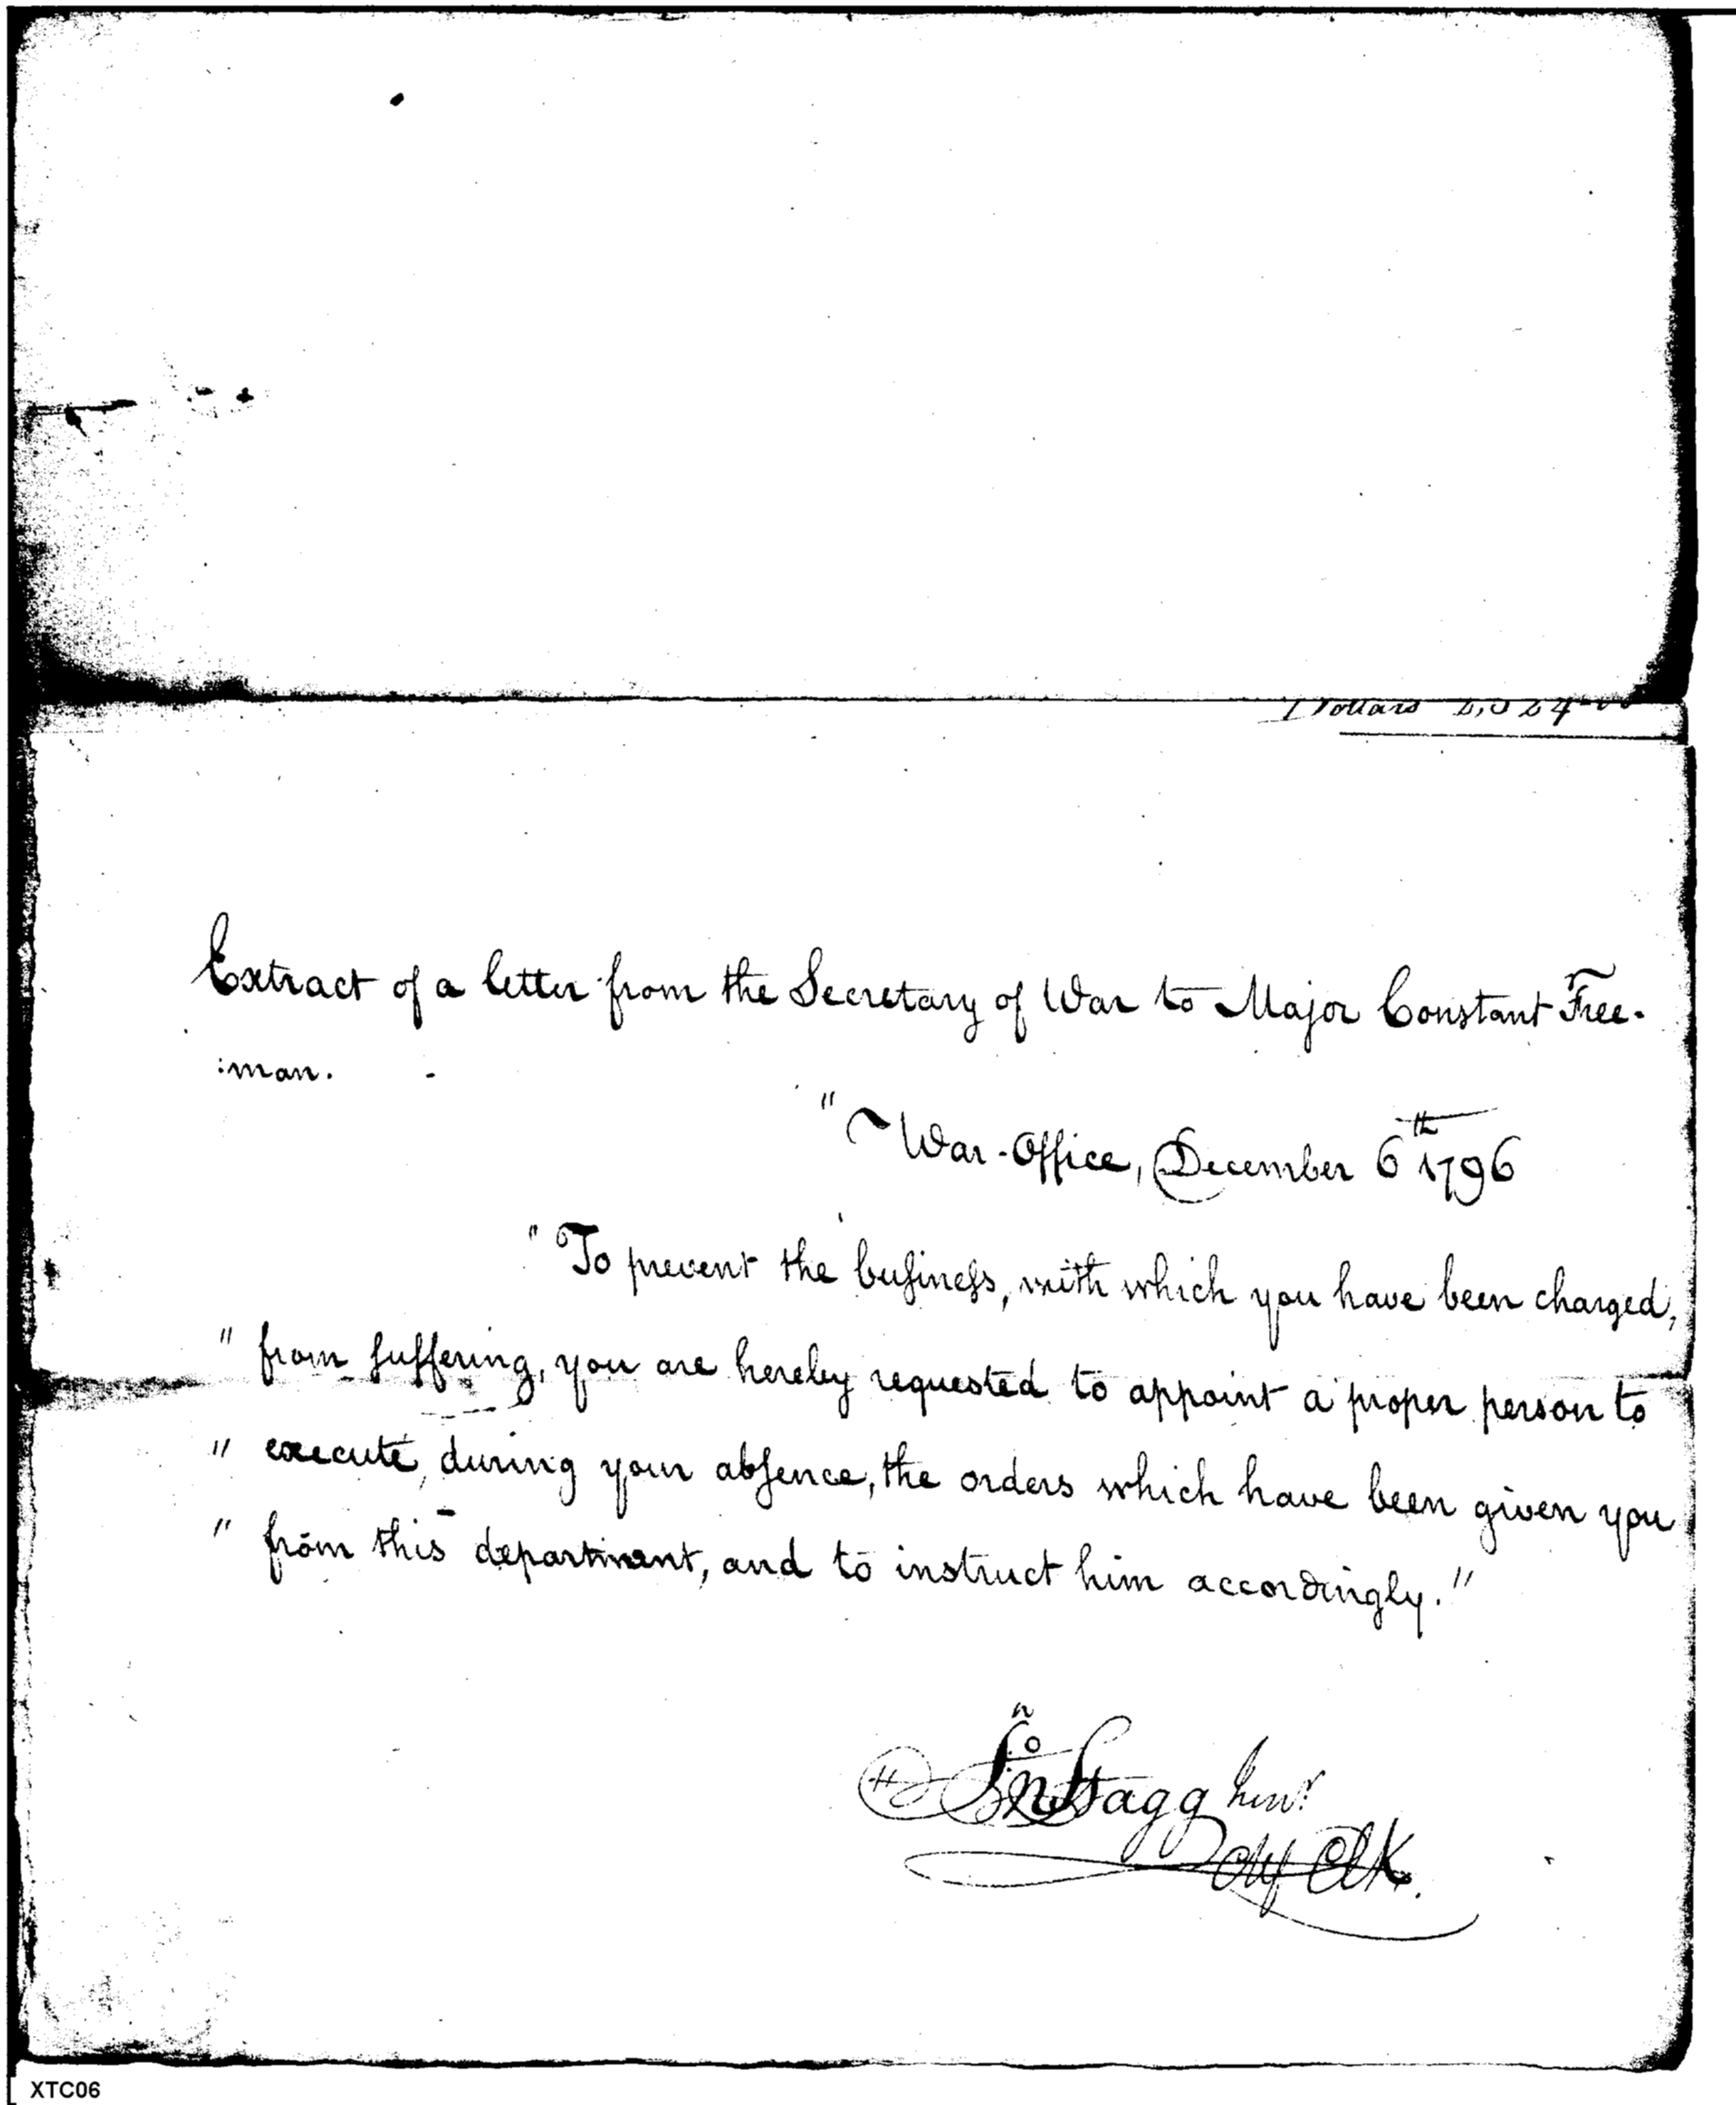 Dollars
Extract of a letter from the Secretary of War to Major Constant Free-
:man.
" War-Office, December 6th 1796
" To prevent the business, with which you have been charged,
" from suffering, you are hereby requested to appoint a proper person to
" execute, during your absence, the orders which have been given you
" from this department, and to instruct him accordingly."
Jno Stagg Junr
Chf Clk.
XTC06